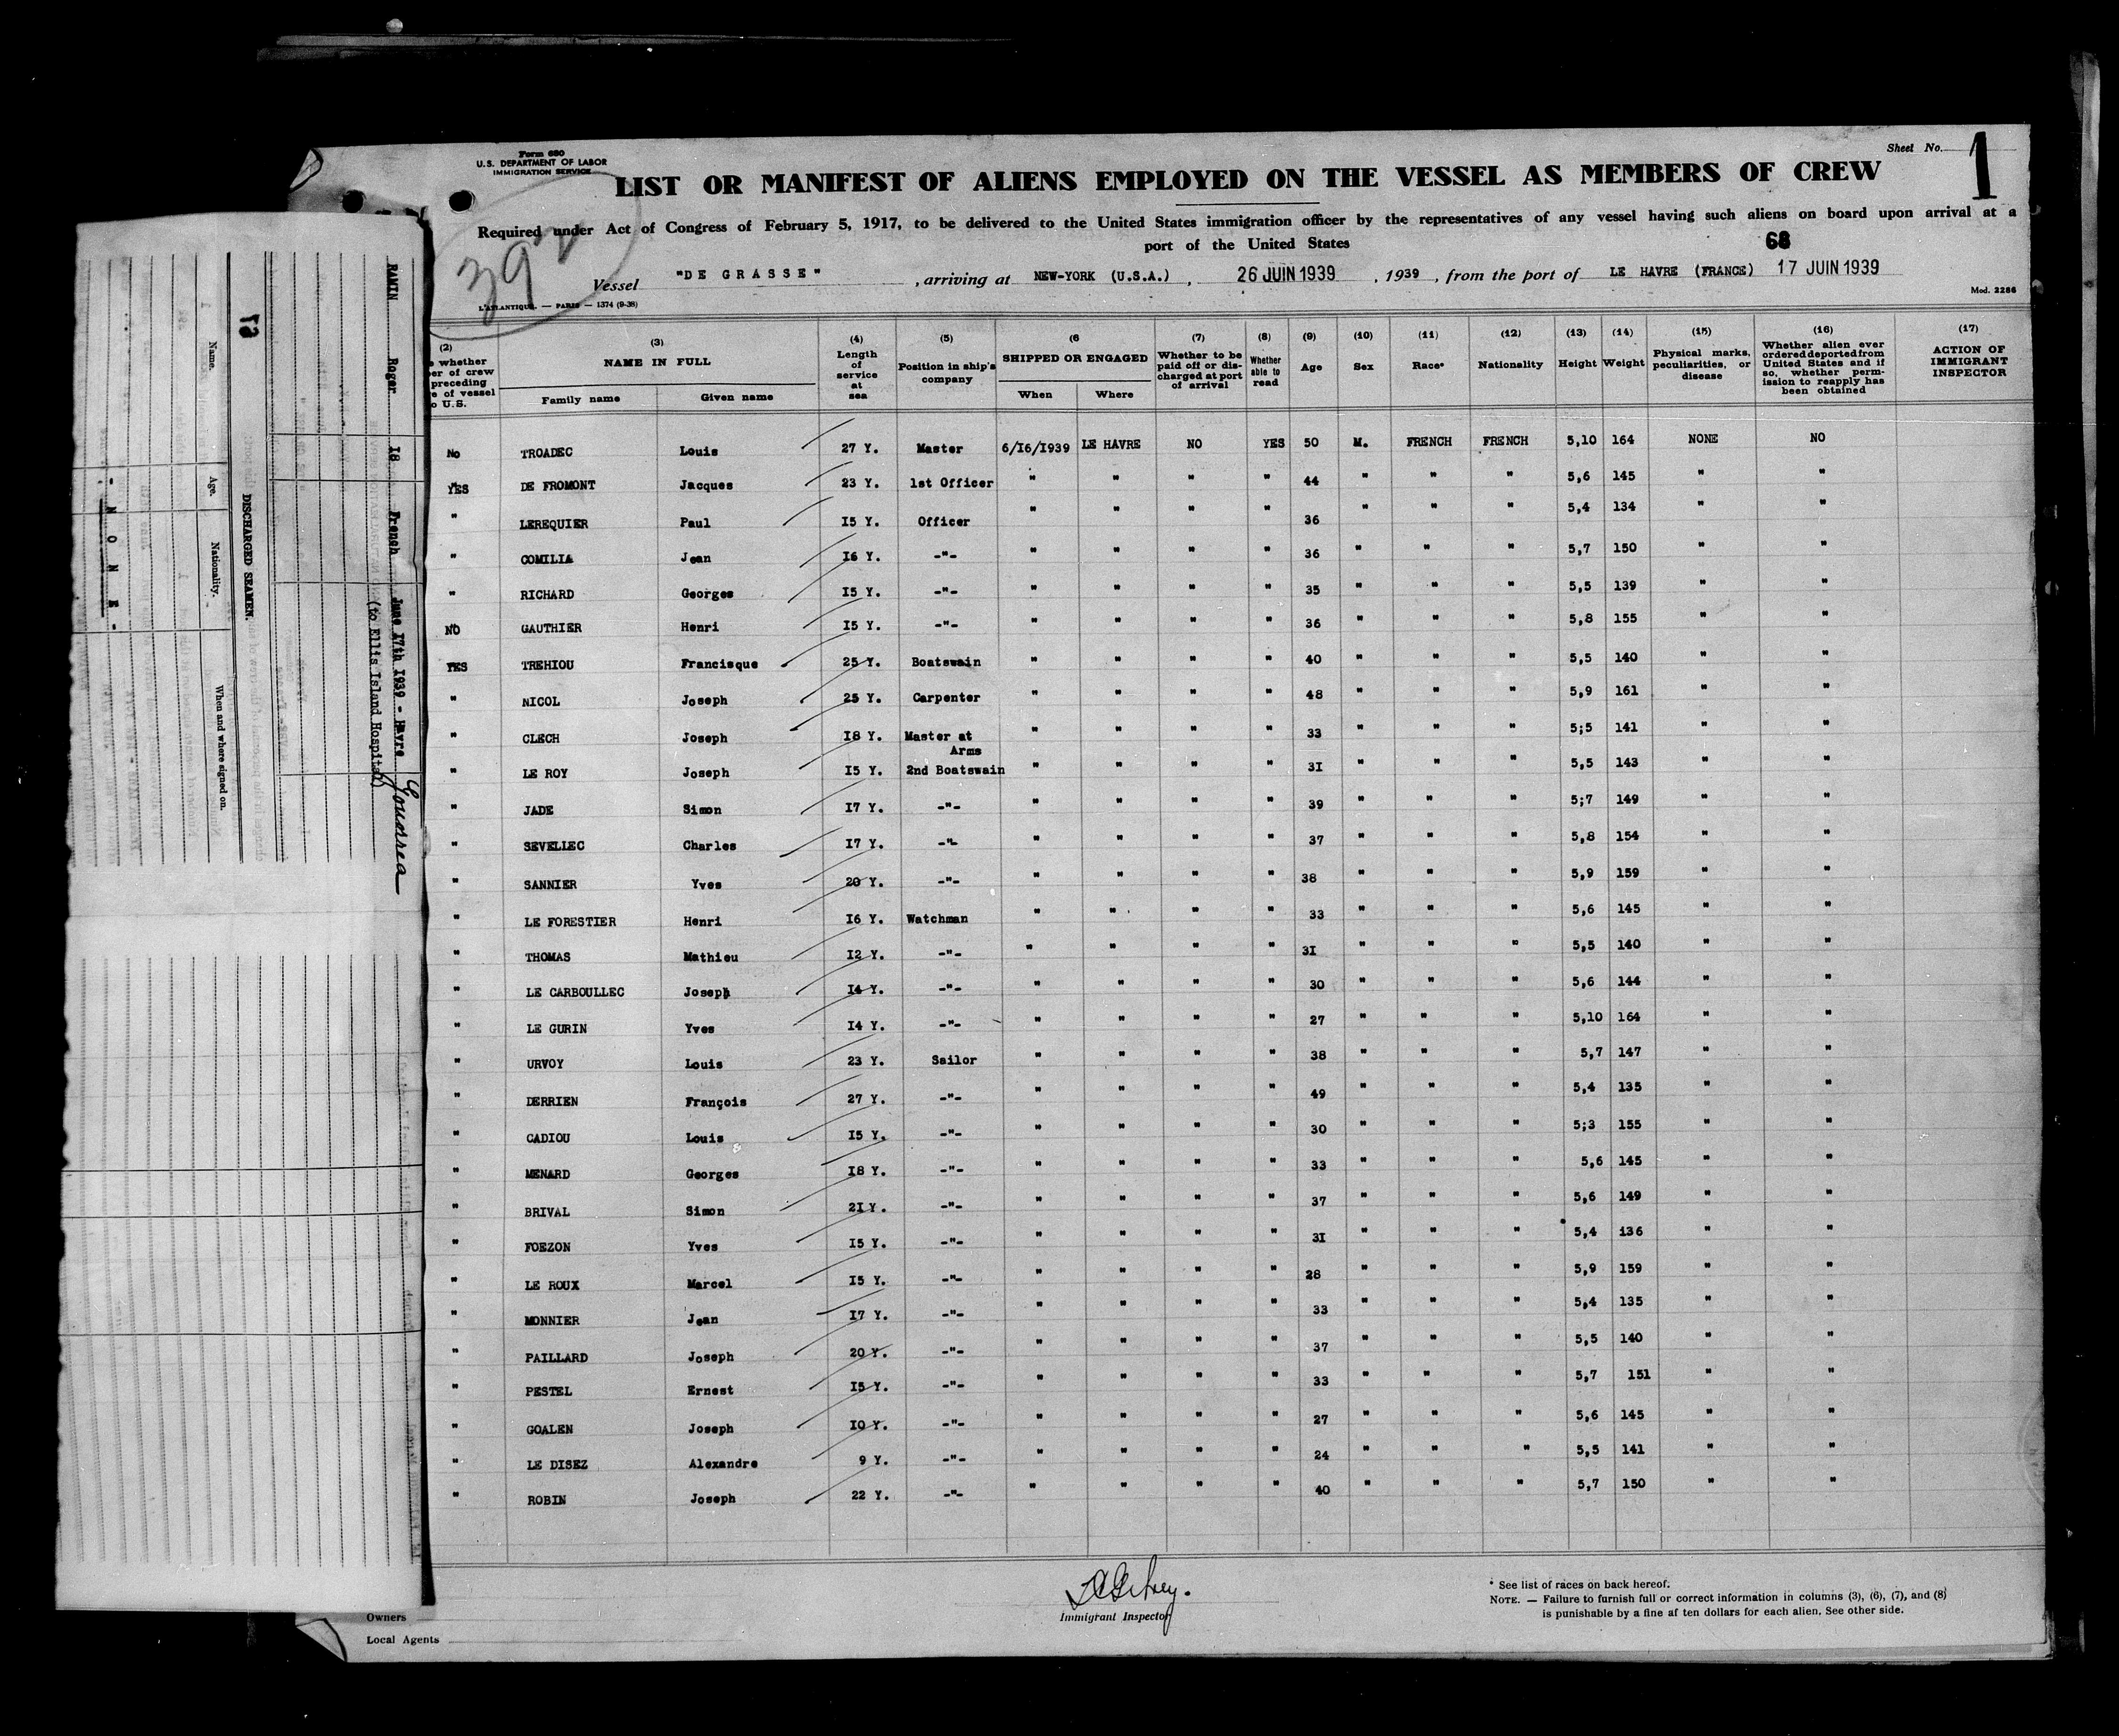 Form 680
U.S. DEPARTMENT OF LABOR
IMMIGRATION SERVICE
Sheet No. 1
LIST OR MANIFEST OF ALIENS EMPLOYED ON THE VESSEL AS MEMBERS OF CREW
Required under Act of Congress of February 5, 1917, to be delivered to the United States immigration officer by the representatives of any vessel having such aliens on board upon arrival at a
port of the United States
68
39
Vessel "DE GRASSE" , arriving at NEW-YORK (U.S.A.) , 26 JUIN 1939 , 1939 , from the port of LE HAVRE (FRANCE) 17 JUIN 1939
L'ATLANTIQUE. — PARIS — 1374 (9-38)
Mod. 2286
(2) (3) (4) (5) (6 (7) (8) (9) (10) (11) (12) (13) (14) (15) (16) (17)
whether
er of crew
preceding
e of vessel
o U.S.
NAME IN FULL
Family name Given name
Length of service at sea
Position in ship's company
SHIPPED OR ENGAGED
When Where
Whether to be paid off or discharged at port of arrival
Whether able to read
Age
Sex
Race*
Nationality
Height
Weight
Physical marks, peculiarities, or disease
Whether alien ever ordered deported from United States and if so, whether permission to reapply has been obtained
ACTION OF IMMIGRANT INSPECTOR
No TROADEC Louis 27 Y. Master 6/I6/I939 LE HAVRE NO YES 50 M. FRENCH FRENCH 5,10 164 NONE NO
YES DE FROMONT Jacques 23 Y. 1st Officer " " " " 44 " " " 5,6 145 " "
" LEREQUIER Paul I5 Y. Officer " " " " 36 " " " 5,4 134 " "
" COMILIA Jean I6 Y. -"- " " " " 36 " " " 5,7 150 " "
" RICHARD Georges I5 Y. -"- " " " " 35 " " " 5,5 139 " "
NO GAUTHIER Henri I5 Y. -"- " " " " 36 " " " 5,8 155 " "
YES TREHIOU Francisque 25 Y. Boatswain " " " " 40 " " " 5,5 140 " "
" NICOL Joseph 25 Y. Carpenter " " " " 48 " " " 5,9 161 " "
" CLECH Joseph I8 Y. Master at Arms " " " " 33 " " " 5;5 141 " "
" LE ROY Joseph I5 Y. 2nd Boatswain " " " " 3I " " " 5,5 143 " "
" JADE Simon I7 Y. -"- " " " " 39 " " " 5;7 149 " "
" SEVELLEC Charles I7 Y. -"- " " " " 37 " " " 5,8 154 " "
" SANNIER Yves 20 Y. -"- " " " " 38 " " " 5,9 159 " "
" LE FORESTIER Henri I6 Y. Watchman " " " " 33 " " " 5,6 145 " "
" THOMAS Mathieu I2 Y. -"- " " " " 3I " " " 5,5 140 " "
" LE CARBOULLEC Joseph I4 Y. -"- " " " " 30 " " " 5,6 144 " "
" LE GURIN Yves I4 Y. -"- " " " " 27 " " " 5,10 164 " "
" URVOY Louis 23 Y. Sailor " " " " 38 " " " 5,7 147 " "
" DERRIEN François 27 Y. -"- " " " " 49 " " " 5,4 135 " "
" CADIOU Louis I5 Y. -"- " " " " 30 " " " 5;3 155 " "
" MENARD Georges I8 Y. -"- " " " " 33 " " " 5,6 145 " "
" BRIVAL Simon 2I Y. -"- " " " " 37 " " " 5,6 149 " "
" FOEZON Yves I5 Y. -"- " " " " 3I " " " 5,4 136 " "
" LE ROUX Marcel I5 Y. -"- " " " " 28 " " " 5,9 159 " "
" MONNIER Jean I7 Y. -"- " " " " 33 " " " 5,4 135 " "
" PAILLARD Joseph 20 Y. -"- " " " " 37 " " " 5,5 140 " "
" PESTEL Ernest I5 Y. -"- " " " " 33 " " " 5,7 151 " "
" GOALEN Joseph I0 Y. -"- " " " " 27 " " " 5,6 145 " "
" LE DISEZ Alexandre 9 Y. -"- " " " " 24 " " " 5,5 141 " "
" ROBIN Joseph 22 Y. -"- " " " " 40 " " " 5,7 150 " "
Immigrant Inspector
* See list of races on back hereof.
NOTE. — Failure to furnish full or correct information in columns (3), (6), (7), and (8)
is punishable by a fine af ten dollars for each alien. See other side.
Owners
Local Agents
RAMIN Roger I8 French June I7th I939 - Havre
(to Ellis Island Hospital)
DISCHARGED SEAMEN.
Name. Age. Nationality. When and where signed on.
- N O N E -